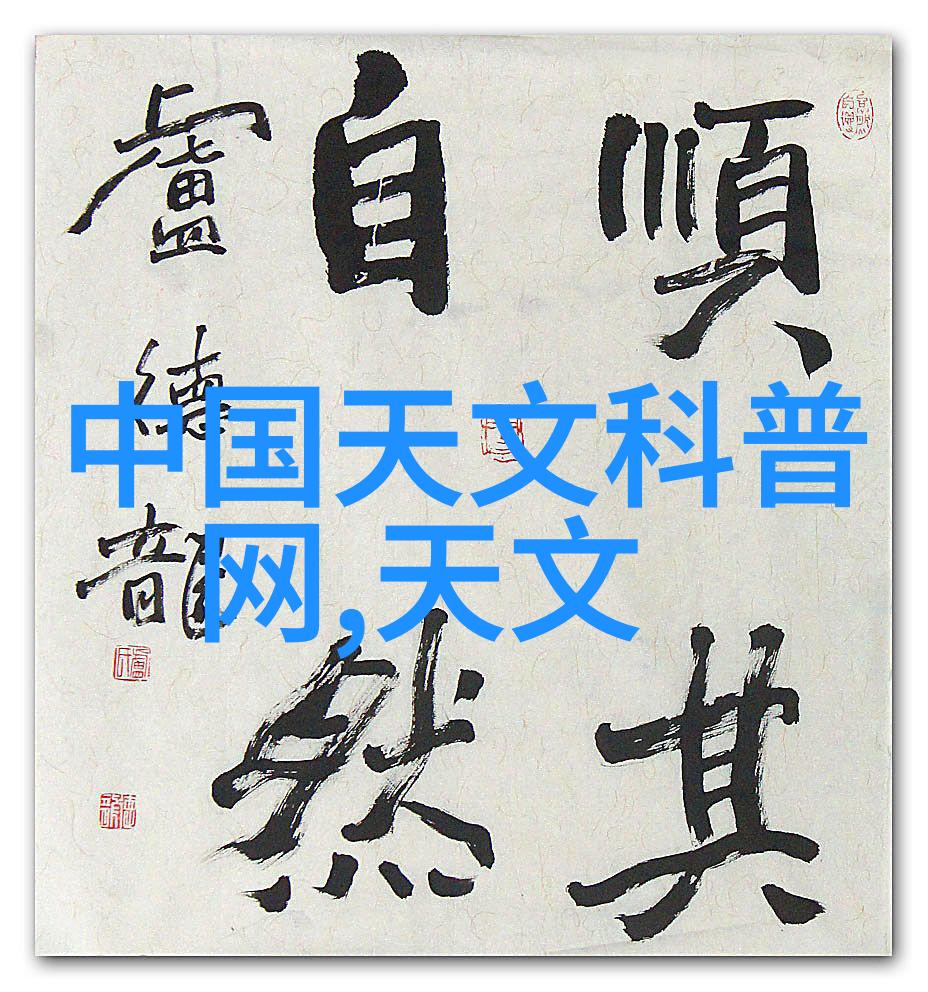 順其
自然
盧德龍
中国天文科普
网,天文